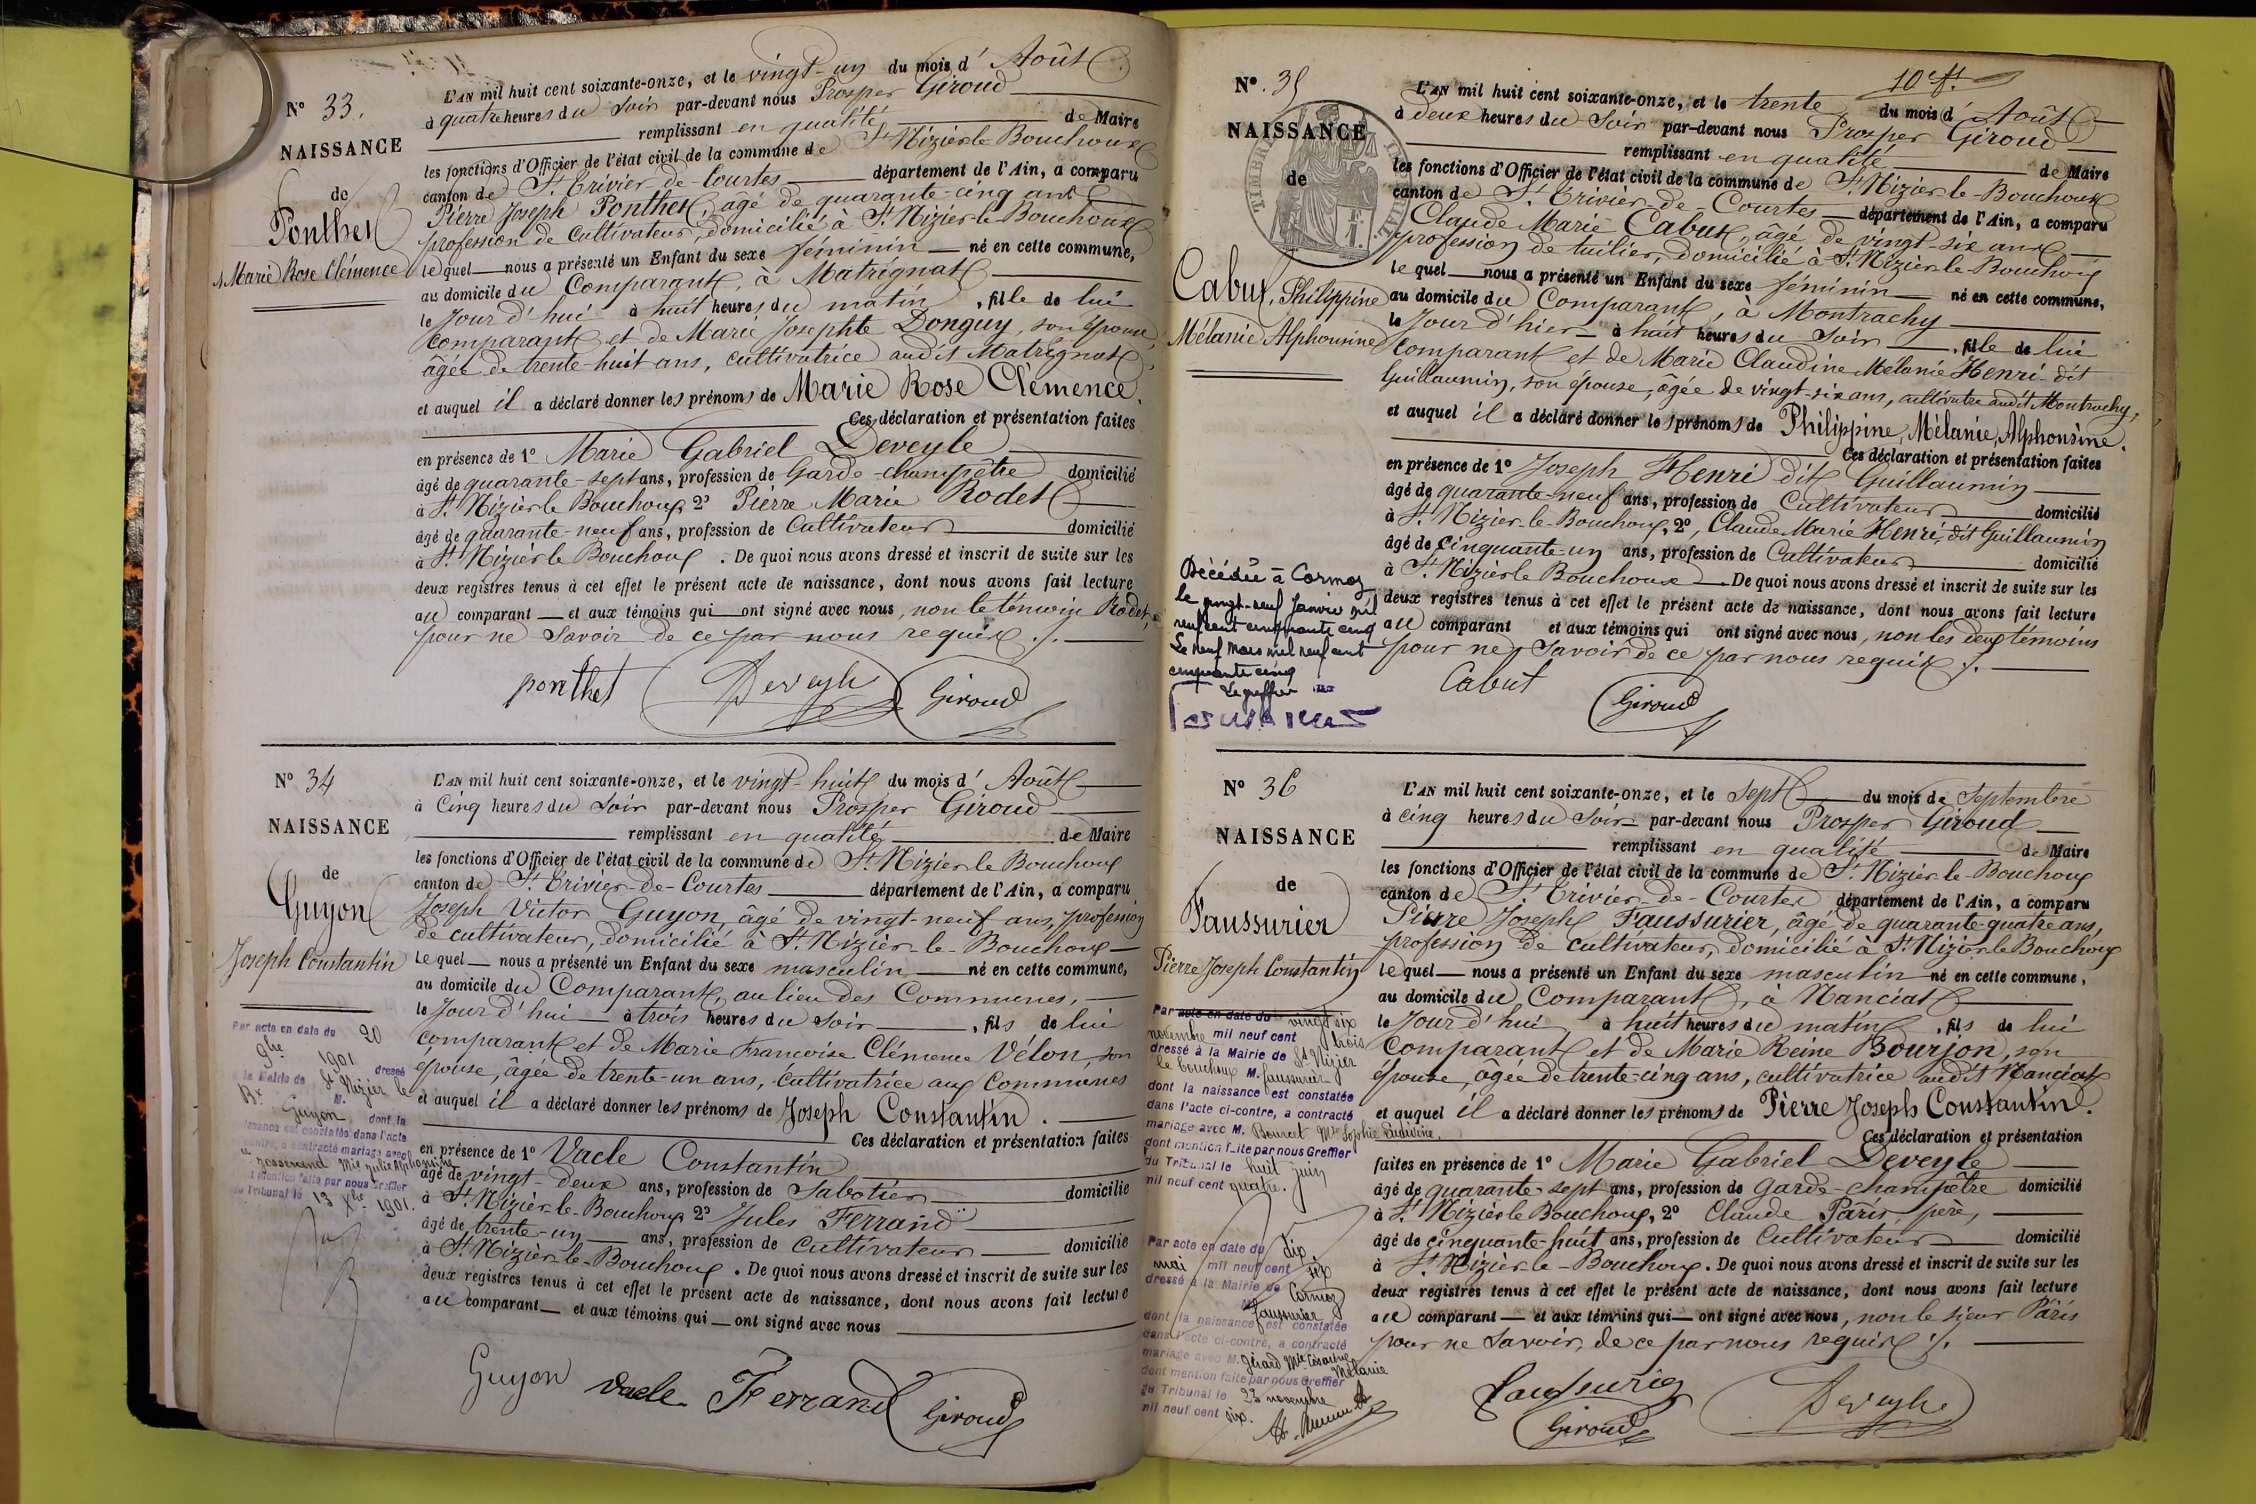 N° 33.
NAISSANCE
de
Ponthet
Marie Rose Clémence
L'AN mil huit cent soixante-onze, et le vingt-un du mois d' Août
à quatre heures du Soir par-devant nous Prosper Giroud
remplissant en qualité de Maire
les fonctions d'Officier de l'état civil de la commune de St Nizier le Bouchoux
canton de St Trivier-de-Courtes département de l'Ain, a comparu
Pierre Joseph Ponthet, âgé de quarante-cinq ans
profession de cultivateur, domicilié à St Nizier le Bouchoux
le quel nous a présenté un Enfant du sexe féminin né en cette commune,
au domicile du Comparant, à Matrignat
le Jour d'hui à huit heures du matin, fille de lui
comparant et de Marie Josephte Donguy, son épouse,
âgée de trente-huit ans, cultivatrice audit Matrignat,
et auquel il a déclaré donner les prénoms de Marie Rose Clémence.
Ces déclaration et présentation faites
en présence de 1° Marie Gabriel Deveyle
âgé de quarante-sept ans, profession de Garde-champêtre domicilié
à St Nizier le Bouchoux, 2° Pierre Marie Rodet
âgé de quarante-neuf ans, profession de Cultivateur domicilié
à St Nizier le Bouchoux. De quoi nous avons dressé et inscrit de suite sur les
deux registres tenus à cet effet le présent acte de naissance, dont nous avons fait lecture
au comparant et aux témoins qui ont signé avec nous, non le témoin Rodet,
pour ne savoir de ce par nous requis ./.
ponthet Deveyle Giroud
N° 34
NAISSANCE
de
Guyon
Joseph Constantin
Par acte en date du 20
9bre 1901 dressé
à la Mairie de St Nizier le
Bx M.
Guyon dont la
naissance est constatée dans l'acte
contre, a contracté mariage avec
Josserand Mie Julie Alphonsine
Mention faite par nous Greffier
du Tribunal le 13 Xbre 1901.
L'AN mil huit cent soixante-onze, et le vingt-huit du mois d' Août
à Cinq heures du Soir par-devant nous Prosper Giroud
remplissant en qualité de Maire
les fonctions d'Officier de l'état civil de la commune de St Nizier le Bouchoux
canton de St Trivier-de-Courtes département de l'Ain, a comparu
Joseph Victor Guyon, âgé de vingt-neuf ans, profession
de cultivateur, domicilié à St Nizier-le-Bouchoux
le quel nous a présenté un Enfant du sexe masculin né en cette commune,
au domicile du Comparant, au lieu des Communes,
le Jour d'hui à trois heures du Soir, fils de lui
comparant et de Marie Françoise Clémence Vélon, son
épouse, âgée de trente-un ans, cultivatrice aux Communes
et auquel il a déclaré donner les prénoms de Joseph Constantin.
Ces déclaration et présentation faites
en présence de 1° Vacle Constantin
âgé de vingt-deux ans, profession de Sabotier domicilié
à St Nizier-le-Bouchoux, 2° Jules Ferrand
âgé de trente-un ans, profession de cultivateur domicilié
à St Nizier-le-Bouchoux. De quoi nous avons dressé et inscrit de suite sur les
deux registres tenus à cet effet le présent acte de naissance, dont nous avons fait lecture
au comparant et aux témoins qui ont signé avec nous
Guyon Vacle Ferrand Giroud
10e ft.
N° 35
NAISSANCE
de
Cabut, Philippine
Mélanie Alphonsine
Décédée à Cormoz
le vingt-neuf Janvier mil
neuf cent cinquante cinq
Le neuf Mars mil neuf cent
cinquante cinq
Le greffier
L'AN mil huit cent soixante-onze, et le trente du mois d' Août
à deux heures du Soir par-devant nous Prosper Giroud
remplissant en qualité de Maire
les fonctions d'Officier de l'état civil de la commune de St Nizier-le-Bouchoux
canton de St Trivier-de-Courtes département de l'Ain, a comparu
Claude Marie Cabut, âgé de vingt-six ans
profession de tuilier, domicilié à St Nizier-le-Bouchoux
le quel nous a présenté un Enfant du sexe féminin né en cette commune,
au domicile du Comparant, à Montrachy
le Jour d'hier à huit heures du Soir, fille de lui
comparant et de Marie Claudine Mélanie Henri dit
Guillaumin, son épouse, âgée de vingt-six ans, cultivatrice audit Montrachy,
et auquel il a déclaré donner les prénoms de Philippine, Mélanie, Alphonsine.
Ces déclaration et présentation faites
en présence de 1° Joseph Henri dit Guillaumin
âgé de quarante-neuf ans, profession de Cultivateur domicilié
à St Nizier-le-Bouchoux, 2°, Claude Marie Henri, dit Guillaumin
âgé de cinquante-un ans, profession de Cultivateur domicilié
à St Nizier le Bouchoux De quoi nous avons dressé et inscrit de suite sur les
deux registres tenus à cet effet le présent acte de naissance, dont nous avons fait lecture
au comparant et aux témoins qui ont signé avec nous, non les deux témoins
pour ne savoir de ce par nous requis ./.
Cabut Giroud
N° 36
NAISSANCE
de
Faussurier
Pierre Joseph Constantin
Par acte en date du vingt six
novembre mil neuf cent trois
dressé à la Mairie de St Nizier
le bouchoux M. faussurier
dont la naissance est constatée
dans l'acte ci-contre, a contracté
mariage avec M. Bourcet Mie Sophie Ludivine,
dont mention faite par nous Greffier
du Tribunal le huit juin
mil neuf cent quatre.
Par acte en date du dix
mai mil neuf cent six
dressé à la Mairie de Cormoz
M. faussurier
dont la naissance est constatée
dans l'acte ci-contre, a contracté
mariage avec M. Gérard Mie Césarine
Mélanie
dont mention faite par nous Greffier
du Tribunal le 23 novembre
mil neuf cent six.
L'AN mil huit cent soixante-onze, et le Sept du mois de Septembre
à cinq heures du Soir par-devant nous Prosper Giroud
remplissant en qualité de Maire
les fonctions d'Officier de l'état civil de la commune de St Nizier-le-Bouchoux
canton de St Trivier-de-Courtes département de l'Ain, a comparu
Pierre Joseph Faussurier, âgé de quarante-quatre ans,
profession de cultivateur, domicilié à St Nizier le Bouchoux
le quel nous a présenté un Enfant du sexe masculin né en cette commune,
au domicile du Comparant, à Nanciat
le Jour d'hui à huit heures du matin, fils de lui
Comparant et de Marie Reine Bourjon, son
épouse, âgée de trente-cinq ans, cultivatrice audit Nanciat
et auquel il a déclaré donner les prénoms de Pierre Joseph Constantin.
Ces déclaration et présentation
faites en présence de 1° Marie Gabriel Deveyle
âgé de quarante-sept ans, profession de garde-champêtre domicilié
à St Nizier le Bouchoux, 2° Claude Pâris père,
âgé de cinquante-huit ans, profession de Cultivateur domicilié
à St Nizier-le-Bouchoux. De quoi nous avons dressé et inscrit de suite sur les
deux registres tenus à cet effet le présent acte de naissance, dont nous avons fait lecture
au comparant et aux témoins qui ont signé avec nous, non le sieur Pâris
pour ne savoir, de ce par nous requis ./.
faussurier Giroud Deveyle